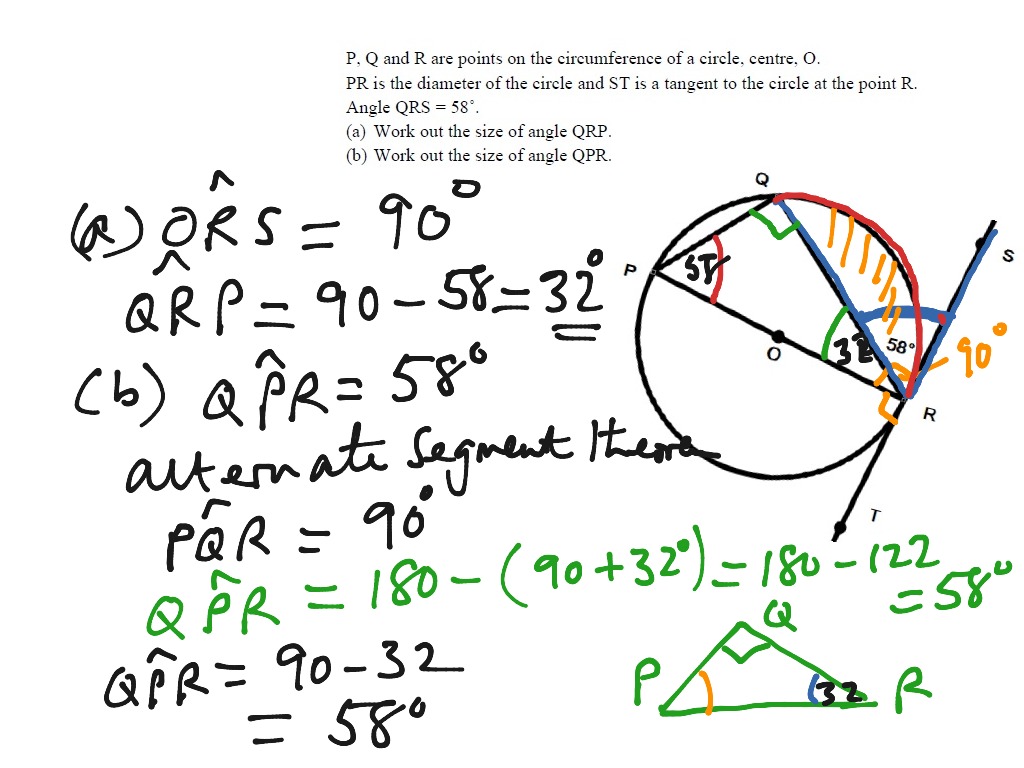 P, Q and R are points on the circumference of a circle, centre, O.
PR is the diameter of the circle and ST is a tangent to the circle at the point R.
Angle QRS = 58°.
(a) Work out the size of angle QRP.
(b) Work out the size of angle QPR.
Q
(a) OR̂S = 90°
S
P
58
QR̂P = 90 - 58 = 32°
O
32
58°
90°
(b) QP̂R = 58°
R
alternate segment theore
T
PQ̂R = 90°
QP̂R = 180 - (90 + 32°) = 180 - 122
= 58°
Q
QP̂R = 90 - 32
P
32
R
= 58°